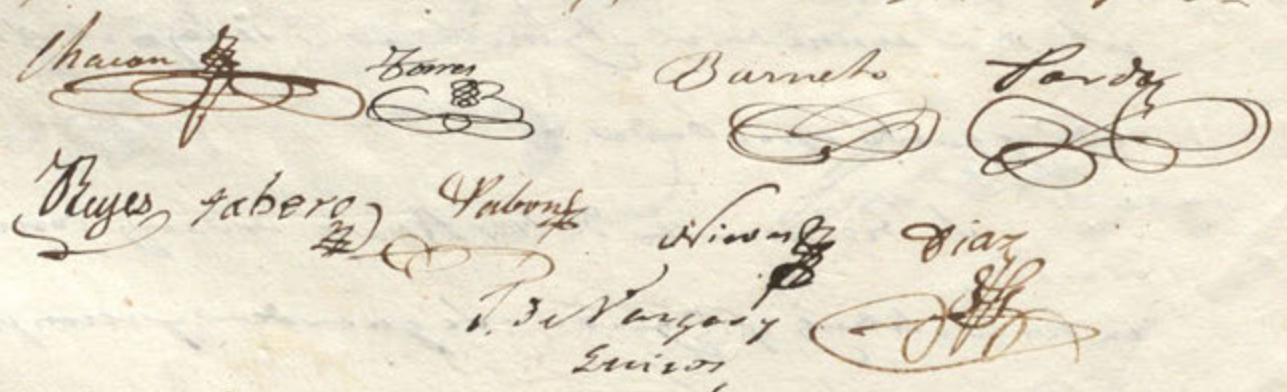 Chacon Torres Barneto Pardo
Reyes Tabero Pabon Nieves Diaz
P. de Vargas y
Quiros